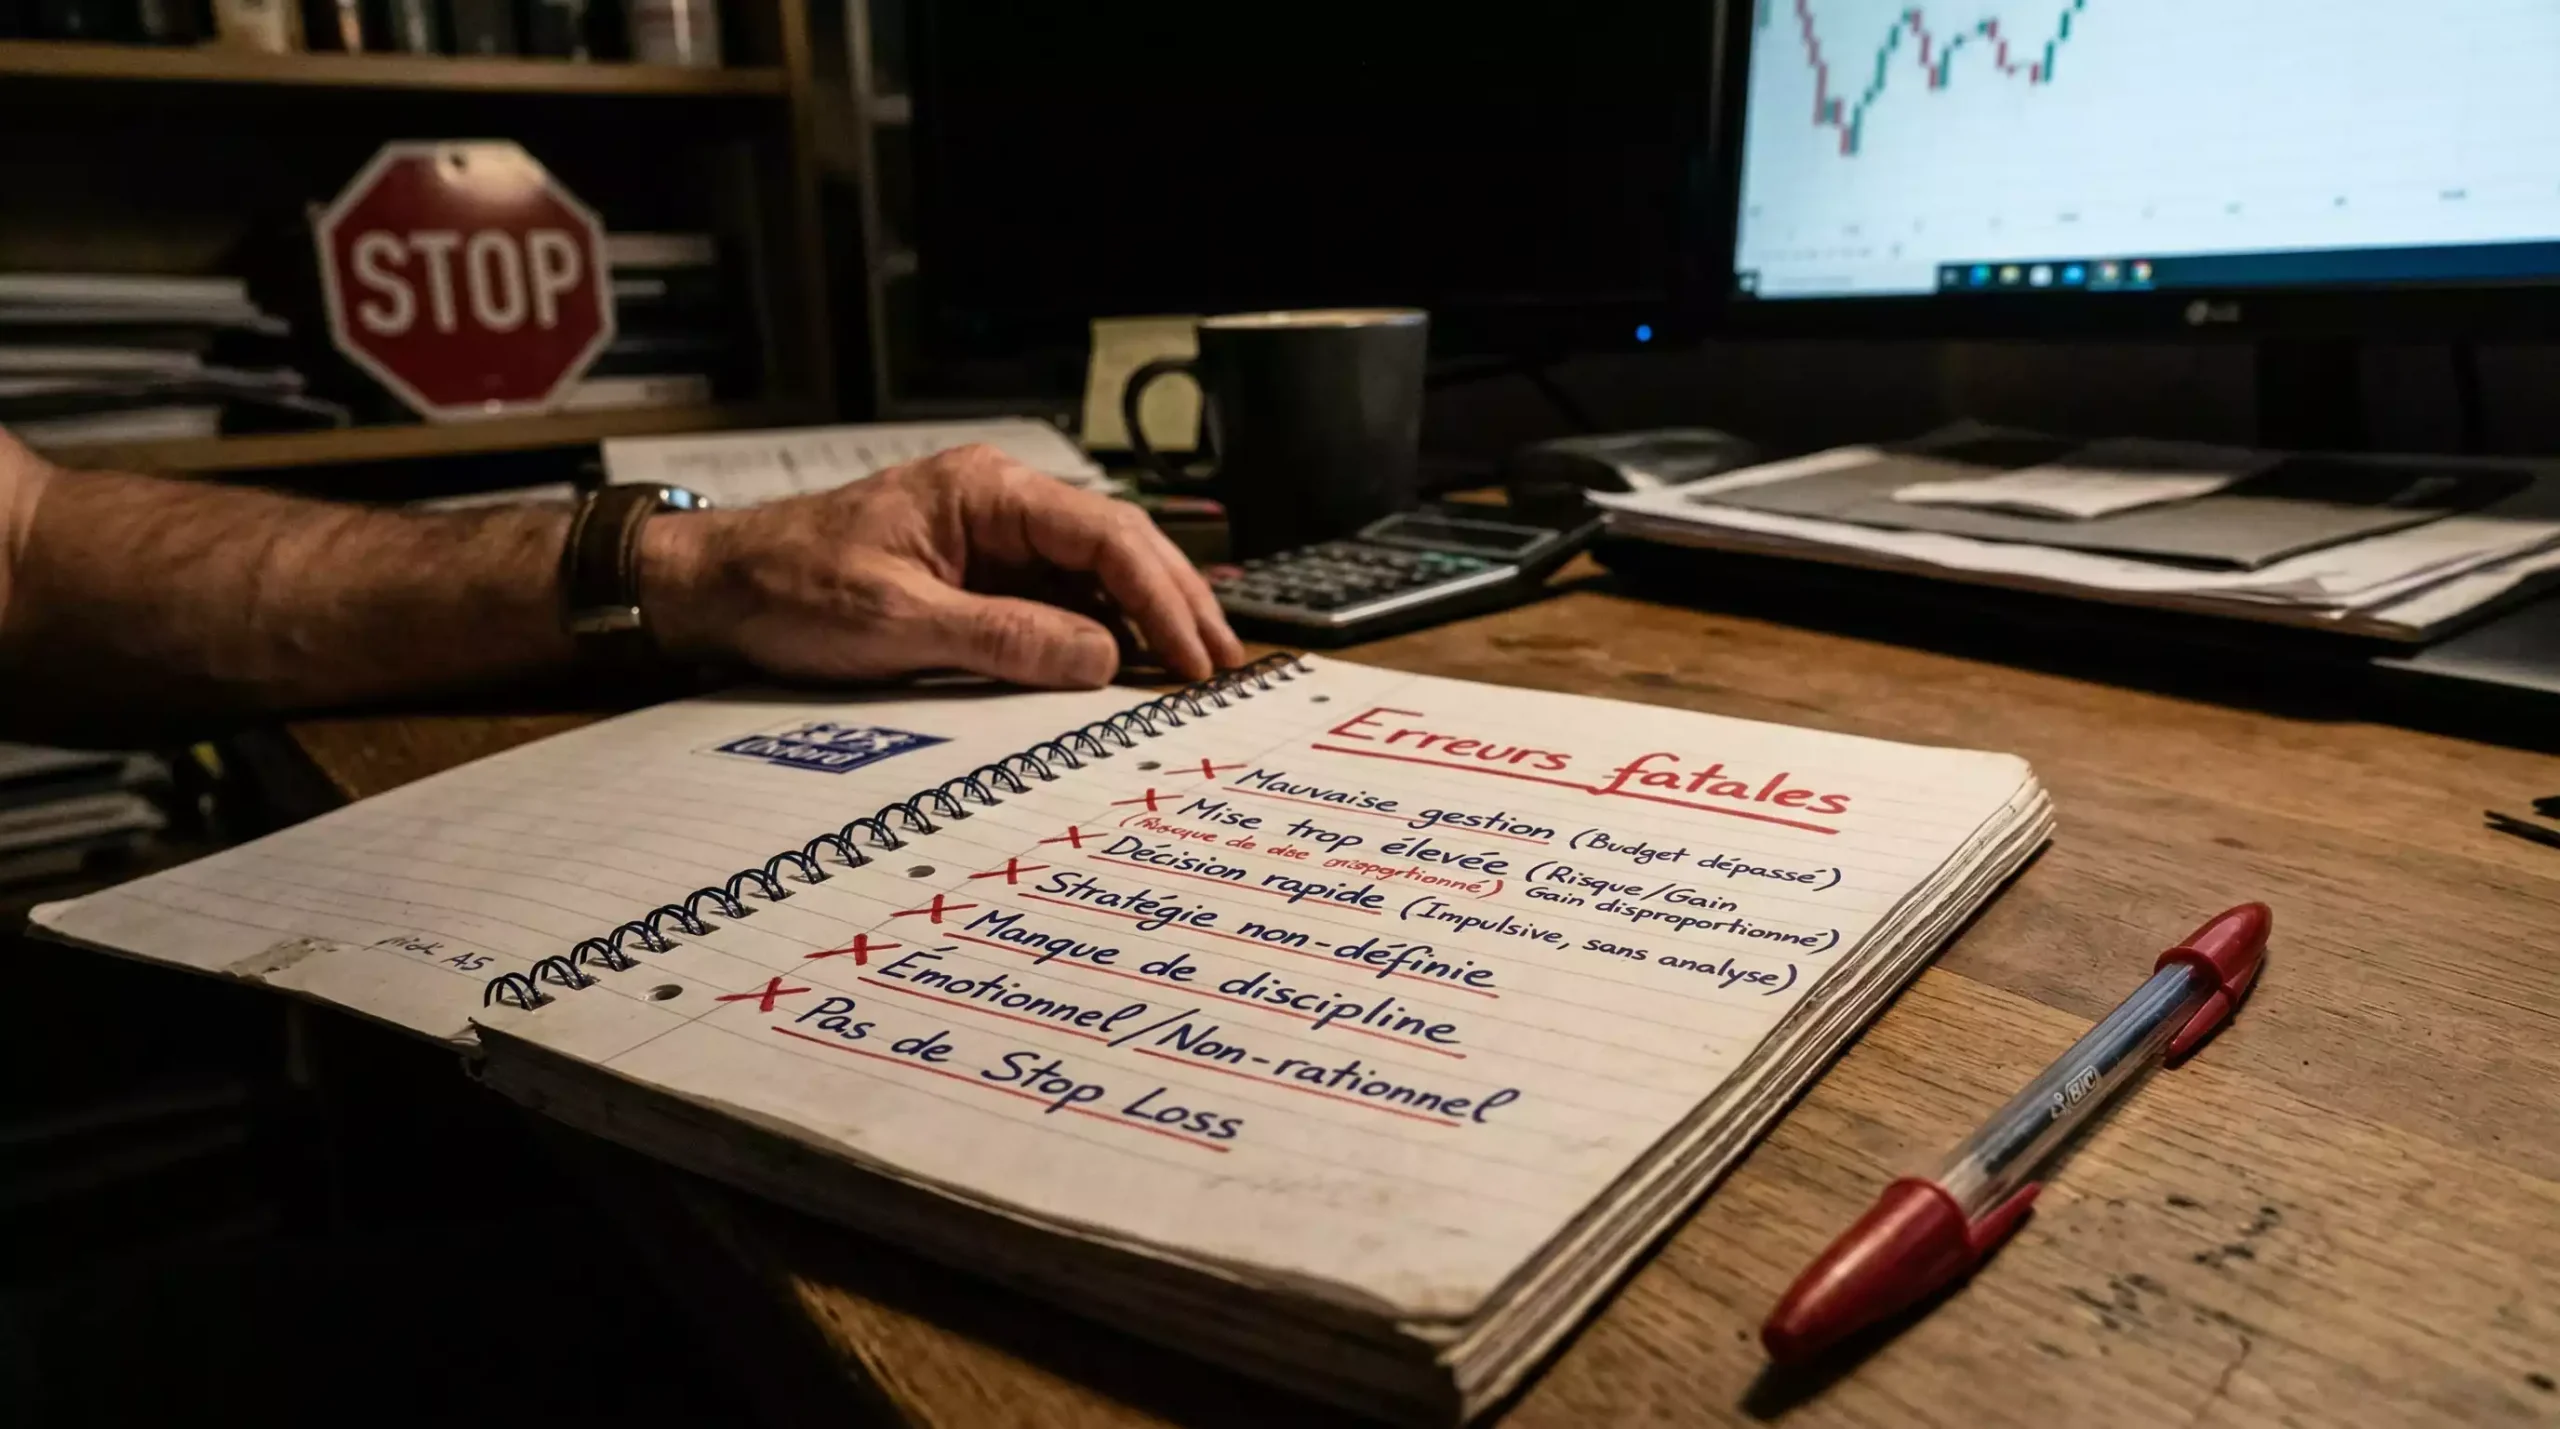 STOP
LG
Oxford
Erreurs fatales
Mauvaise gestion (Budget dépassé)
Mise trop élevée (Risque/Gain
Gain disproportionné)
Décision rapide (Impulsive, sans analyse)
Stratégie non-définie
Manque de discipline
Émotionnel/Non-rationnel
Pas de Stop Loss
A5
BIC